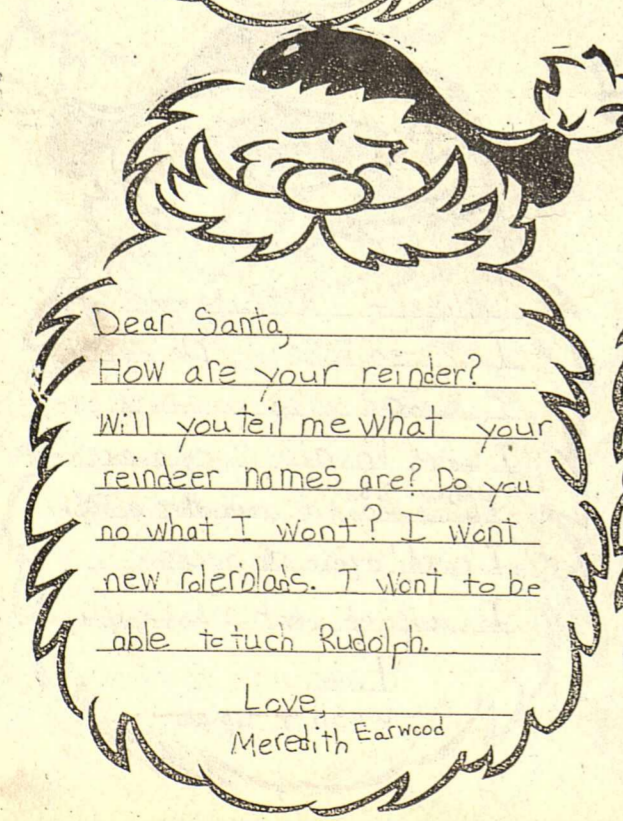 Dear Santa,
How are your reinder?
Will you teil me what your
reindeer names are? Do you
no what I wont? I wont
new rolerblads. I wont to be
able to tuch Rudolph.
Love
Meredith Earwood